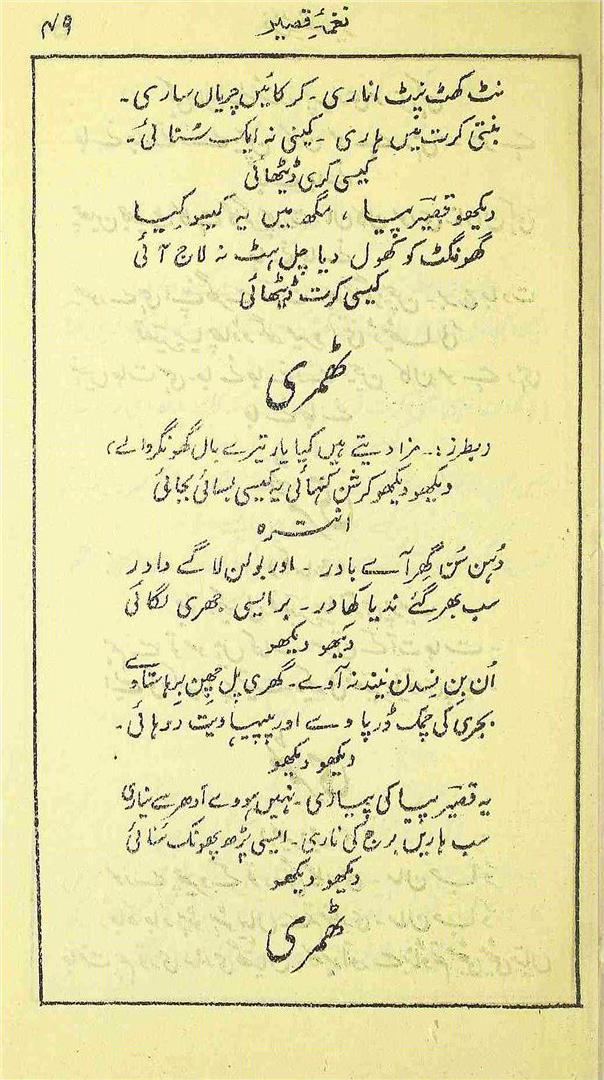 نغمۂ قصیر
۴۹
نٹ کھٹ نپٹ اناری ۔ کرکائیں چریاں ساری ۔
بنتی کرت میں ہاری ۔ کینی نہ ایک سُنائی ۔
کیسی کری ڈیٹھائی
دیکھو قصیر پیا ، مگھ میں یہ کیسو کیا
گھونگٹ کو کھول دیا چل ہٹ نہ لاج آئی
کیسی کرت ڈیٹھائی
ٹھمری
(بطرز :۔ مزا دیتے ہیں کیا یار تیرے بال گھونگروالے)
دیکھو دیکھو کرشن کنہائی یہ کیسی بنسائی بجائی
انترہ
دُہن سُن گھر آے بادر ۔ اور بولن لاگے دادر
سب بھر گئے ندیا کھادر ۔ بر ایسی جھری لگائی
دیکھو دیکھو
اُن بن نسدن نیند نہ آوے ۔ گھری پل چھن برہا ستاوے
بجری کی چمک ڈرپاوے اور پپیہا دیت دوہائی ۔
دیکھو دیکھو
یہ قصیر پیا کی پیاری ۔ نہیں ہووے ادھر سے نیاری
سب ہاریں برج کی ناری ۔ ایسی پڑھ پھونک سُنائی
دیکھو دیکھو
ٹھمری